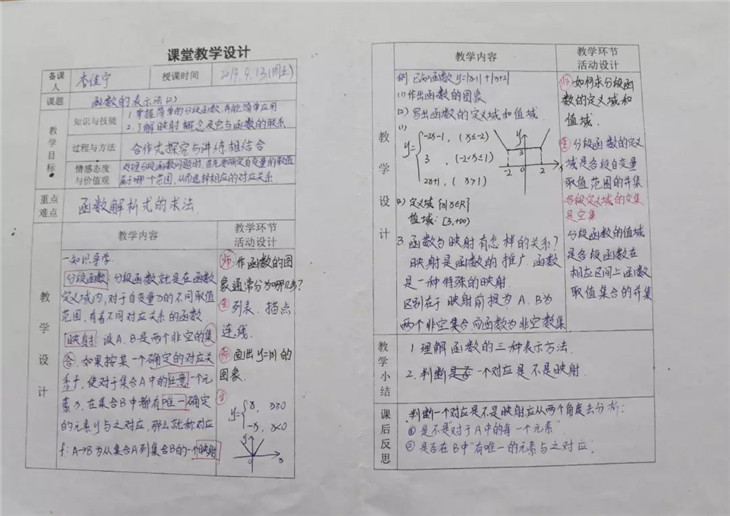 课堂教学设计
备课人 李佳宁 授课时间 2019.9.13(周五)
课题 函数的表示法(2)
教学目标
知识与技能
1. 掌握简单的分段函数,并能简单应用
2. 了解映射概念及它与函数的联系
过程与方法 合作式探究与讲练相结合
情感态度与价值观
处理分段函数问题时,首先要确定自变量的取值
属于哪个范围,从而选择相应的对应关系
重点难点 函数解析式的求法.
教学设计
教学内容
一.知识导学
分段函数:分段函数就是在函数
定义域内,对于自变量x的不同取值
范围,有着不同对应关系的函数
映射:设A、B是两个非空的集
合,如果按某一个确定的对应关
系f,使对于集合A中的任意一个元
素x,在集合B中都有唯一确定
的元素y与之对应,那么就称对应
f:A→B为从集合A到集合B的一个映射
教学环节
活动设计
师 作函数的图
象通常分为哪几步?
生 列表、描点
连线.
师 画出y=|x|的
图象.
生
y={x, x≥0
-x, x<0
y
x
教学设计
教学内容
例 已知函数y=|x-1|+|x+2|
(1)作出函数的图象
(2)写出函数的定义域和值域
(1)
y={-2x-1, (x≤-2)
3, (-2<x≤1)
2x+1, (x>1)
y
3
-2 0 2 x
(2) 定义域{x|x∈R}
值域:[3,+∞)
3 函数与映射有怎样的关系?
映射是函数的推广,函数
是一种特殊的映射.
区别在于映射前提为A、B为
两个非空集合而函数为非空数集
教学环节
活动设计
师 如何求分段函
数的定义域和
值域.
生 分段函数的定义
域是各段自变量
取值范围的并集
各段定义域的交集
是空集
分段函数的值域
是各段函数在
相应区间上函数
取值集合的并集
教学小结
1 理解函数的三种表示方法.
2. 判断是否一个对应是不是映射.
课后反思
判断一个对应是不是映射应从两个角度去分析:
① 是不是"对于A中的每一个元素"
② 是否在B中"有唯一的元素与之对应".